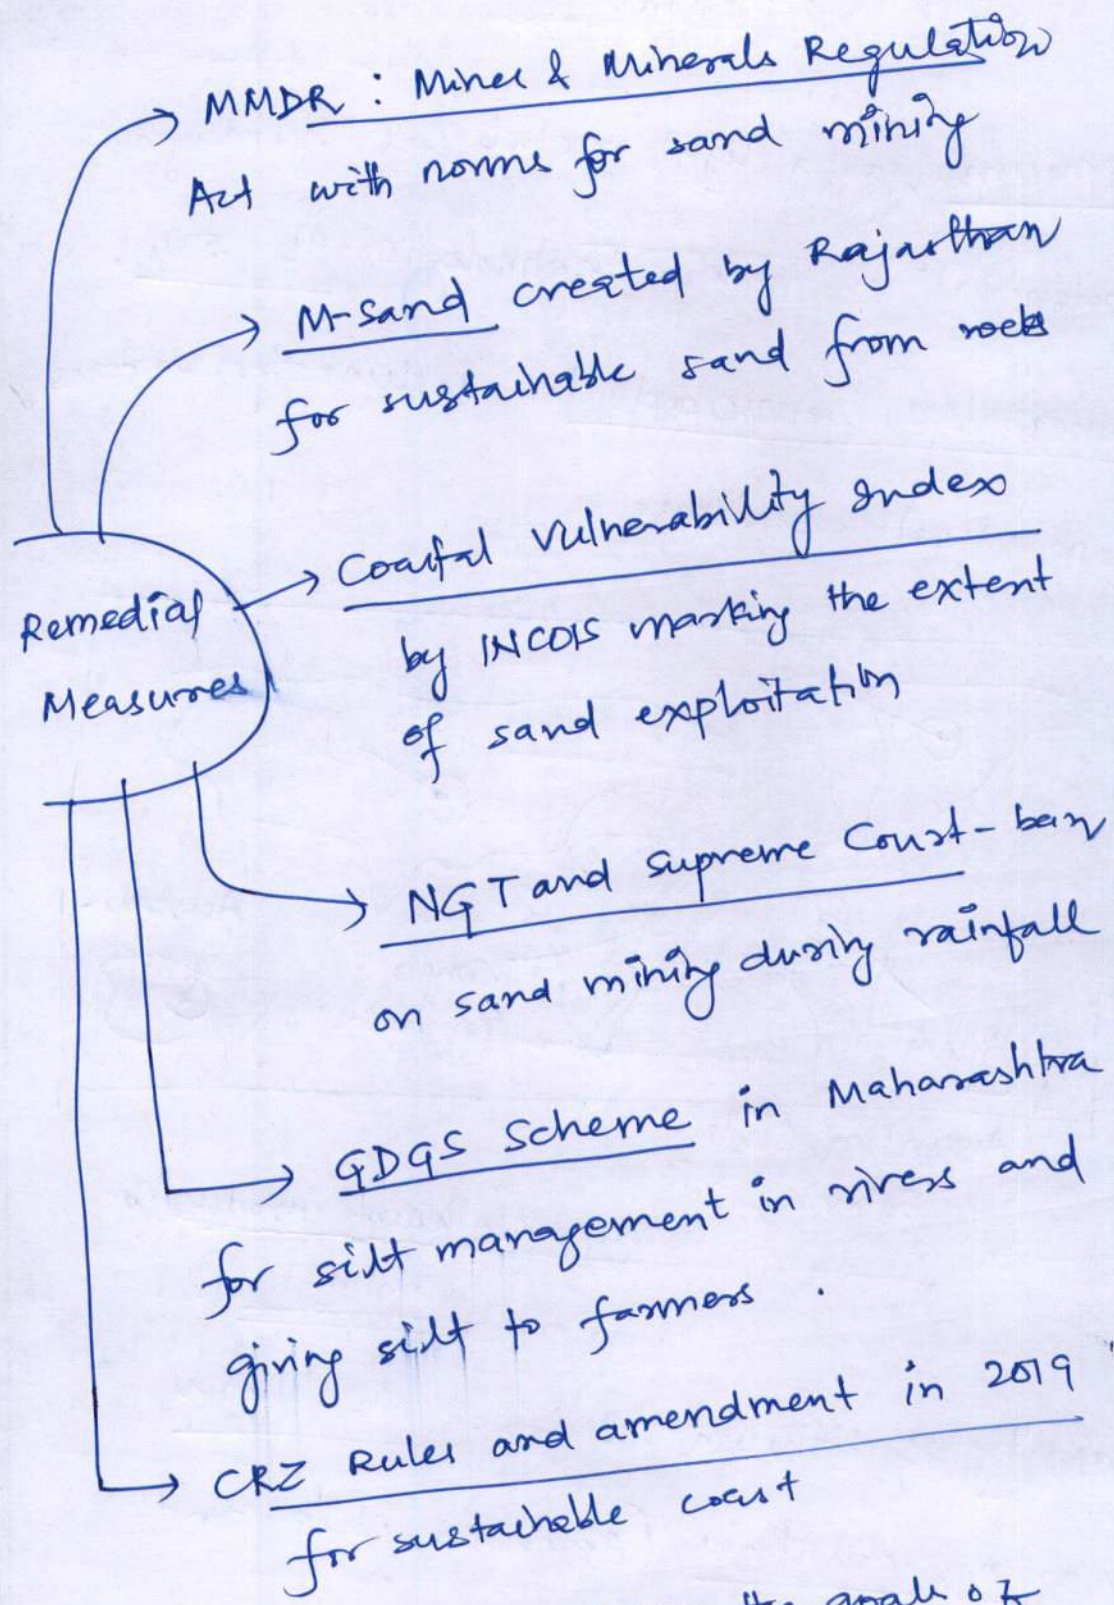 MMDR : Mines & Minerals Regulation
Act with norms for sand mining
M-Sand created by Rajasthan
for sustainable sand from rocks
Coastal Vulnerability Index
by INCOIS marking the extent
of sand exploitation
Remedial
Measures
NGT and Supreme Court - ban
on sand mining during rainfall
GDGS Scheme in Maharashtra
for silt management in rivers and
giving silt to farmers .
CRZ Rules and amendment in 2019
for sustainable coast
goals of